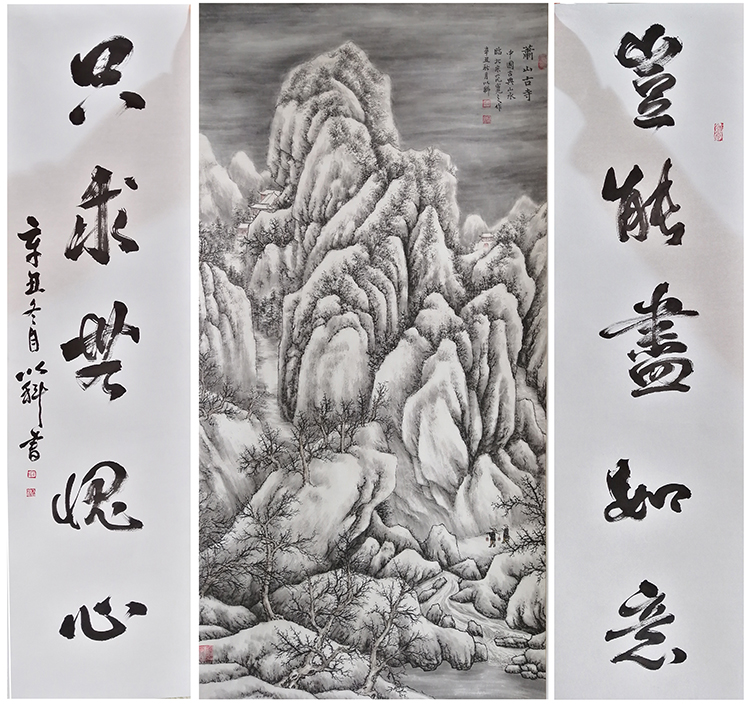 豈能盡如意
蕭山古寺
中國古典山水
臨北宋范寬之作
辛丑秋月以科
只求無愧心
辛丑冬月以科書